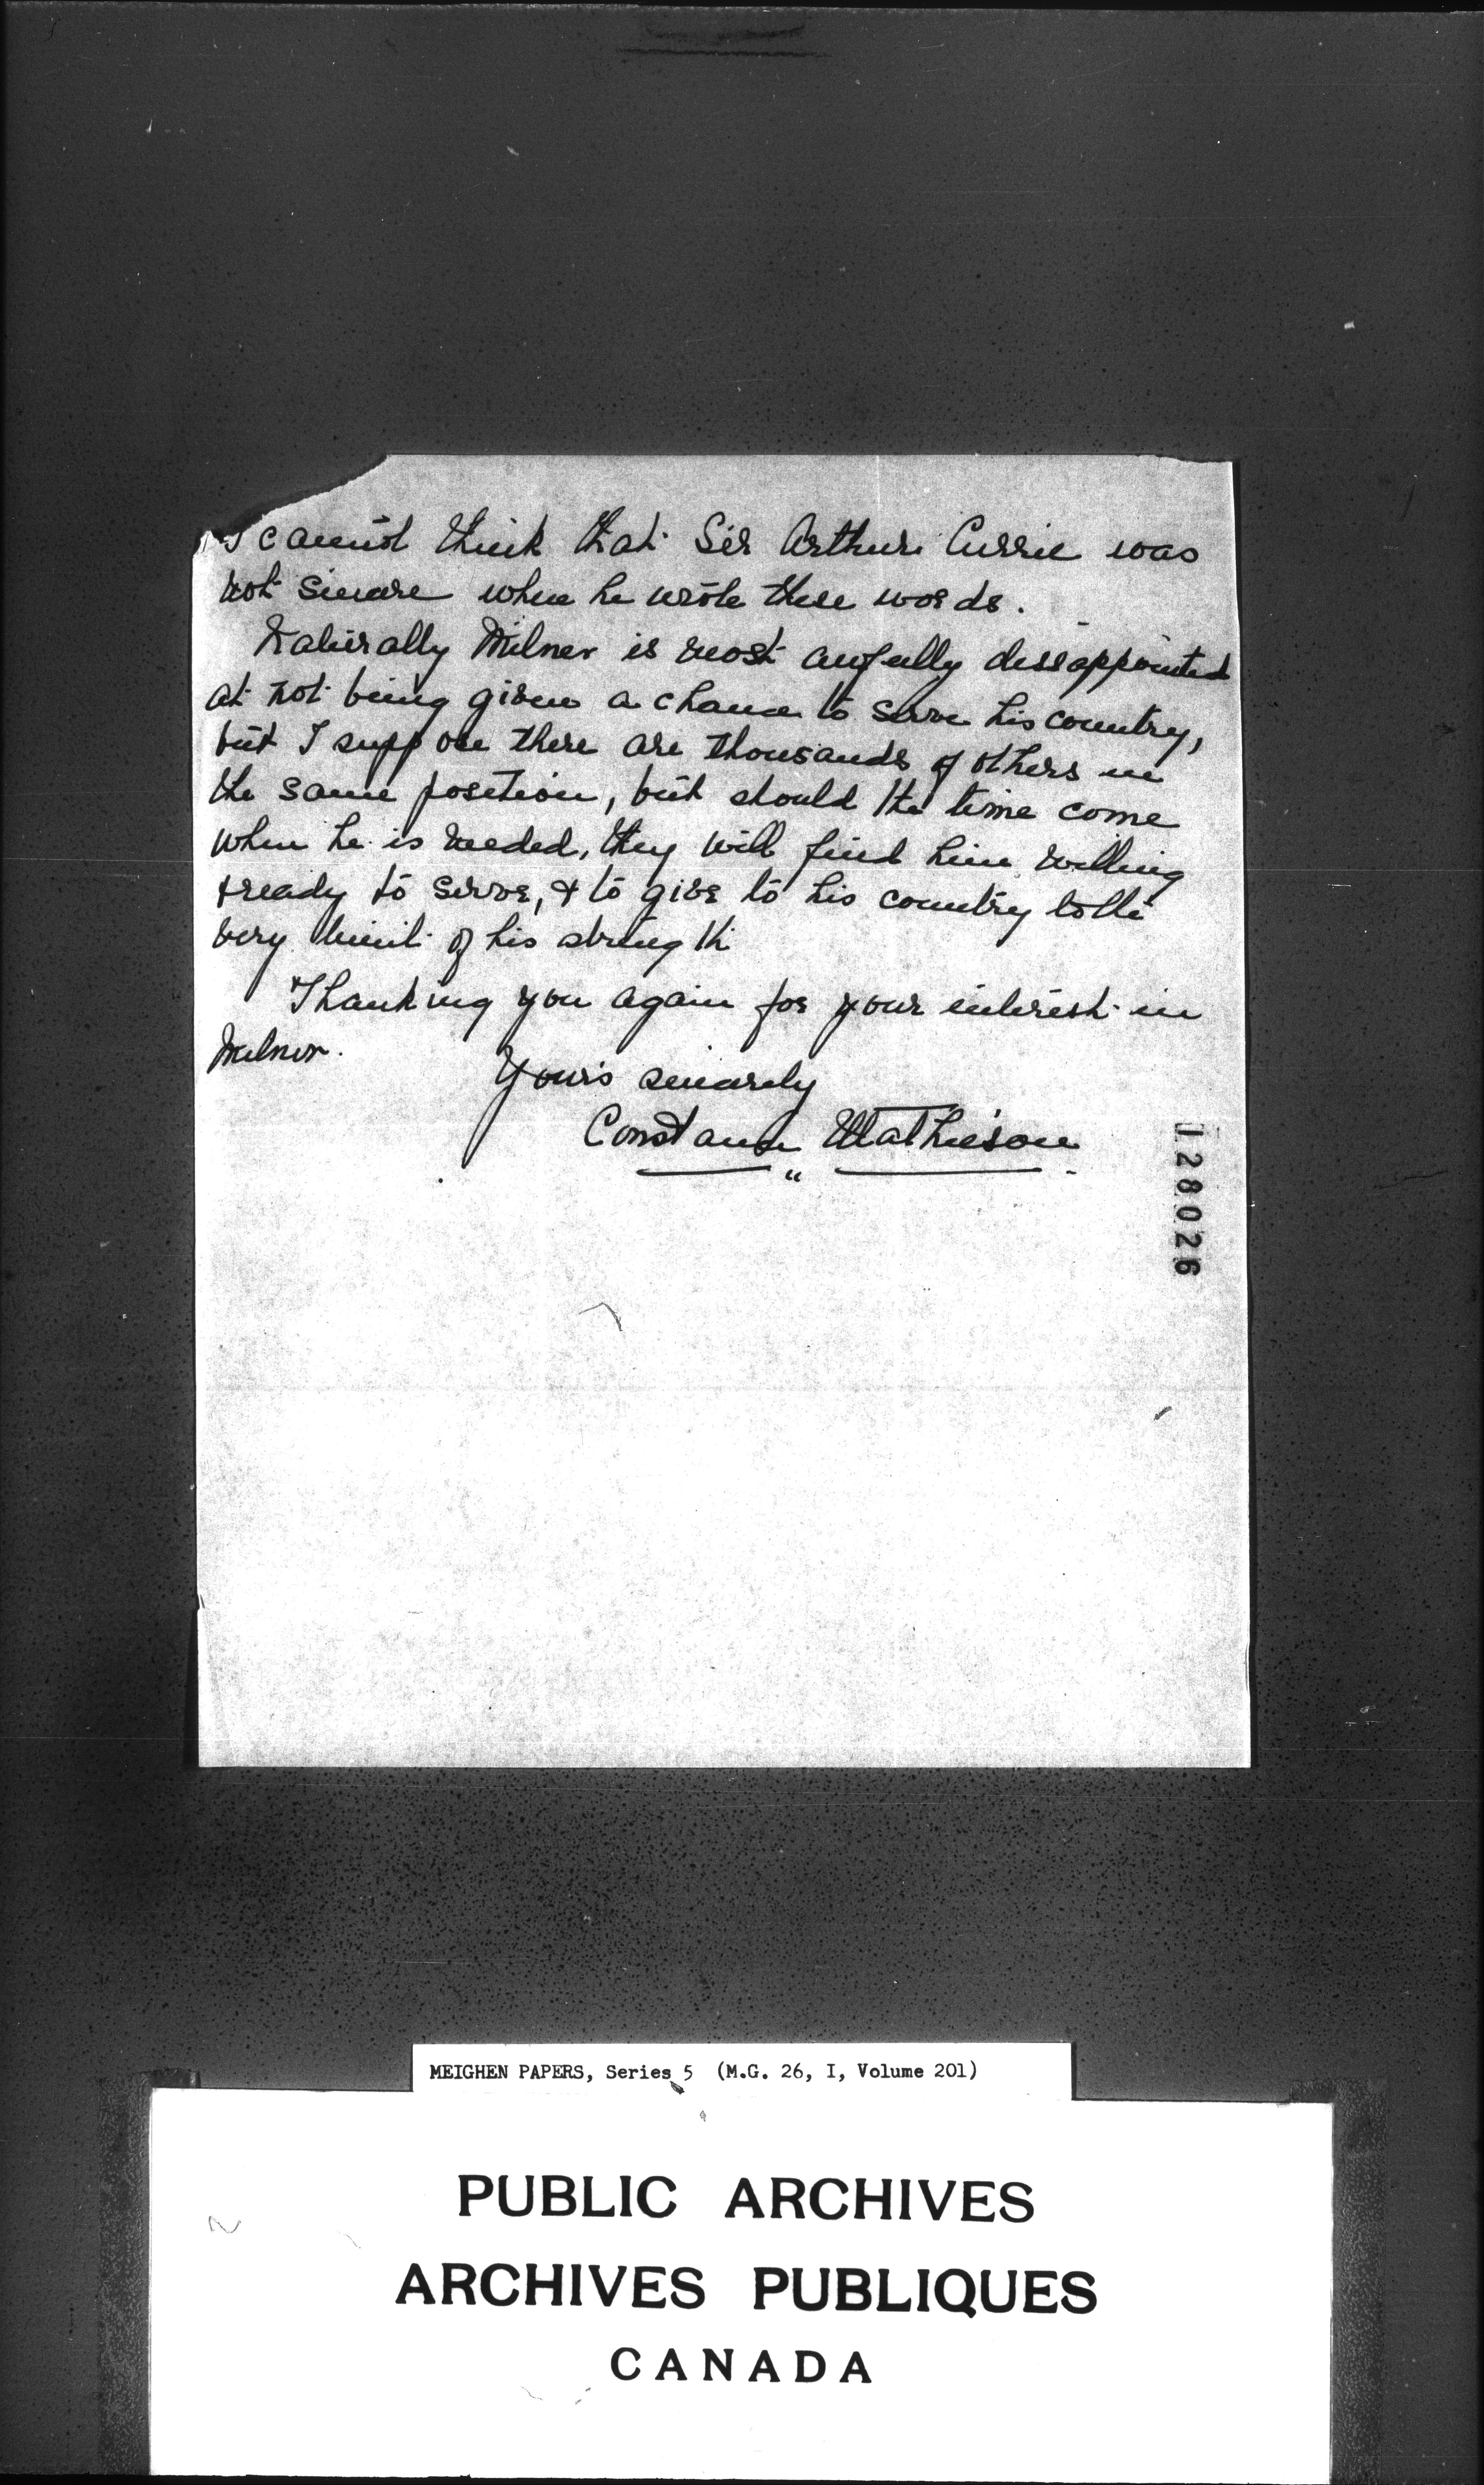 I cannot think that Sir Arthur Currie was
not sincere when he wrote these words.
Naturally Milner is most awfully dissappointed
at not being given a chance to serve his country,
but I suppose there are thousands of others in
the same position, but should the time come
when he is needed, they will find him willing
& ready to serve, & to give to his country to the
very limit of his strength
Thanking you again for your interest in
Milner.
Yours sincerely
Constance Mathieson
128026
MEIGHEN PAPERS, Series 5 (M.G. 26, I, Volume 201)
PUBLIC ARCHIVES
ARCHIVES PUBLIQUES
CANADA